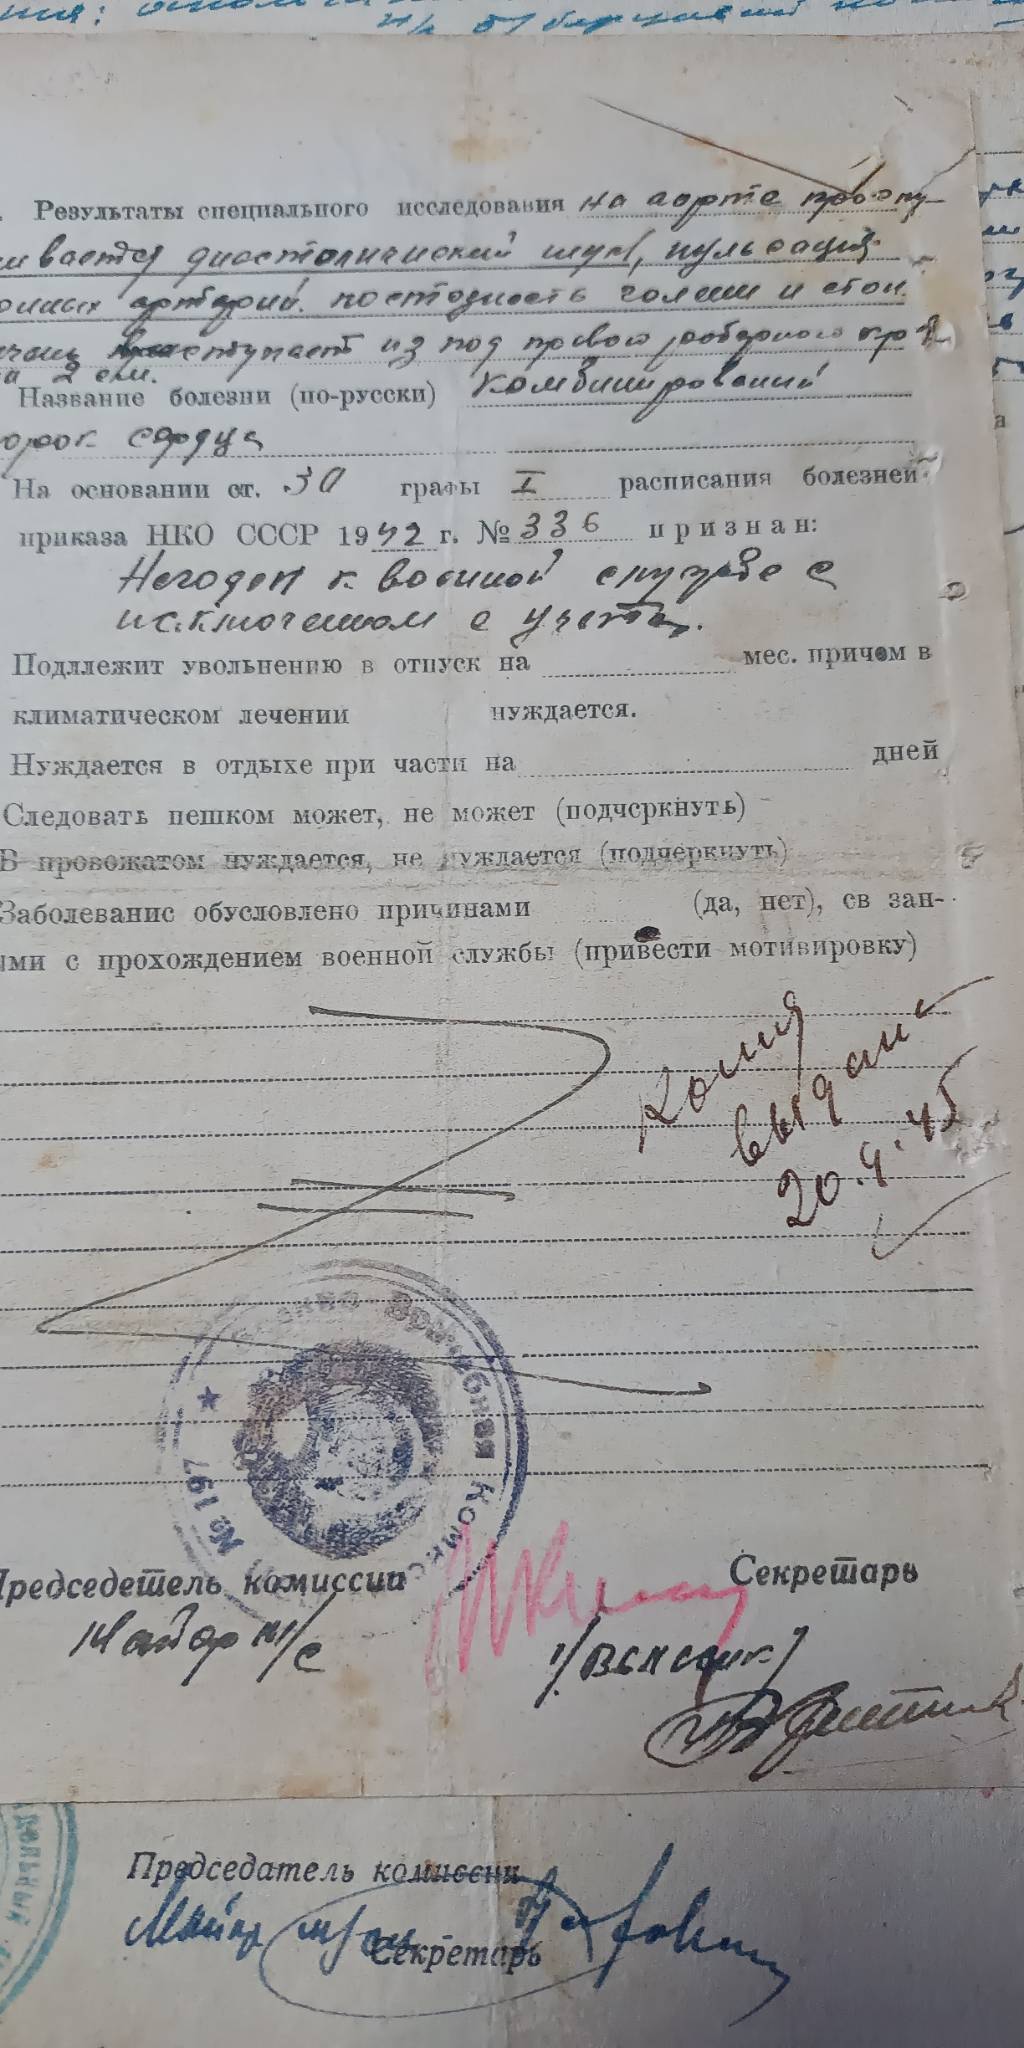 Результаты специального исследования на аорте прослу-
ивается диастолический шум, пульсация
онных артерий. постозность голени и стоп.
ечень выступает из под правого реберного кр
а 2 см.
Название болезни (по-русски) комбинированый
орок сердца
На основании ст. 30 графы I расписания болезней
приказа НКО СССР 1942 г. № 336 признан:
Негоден к военной службе с
исключением с учета.
Подллежит увольнению в отпуск на мес. причом в
климатическом лечении нуждается.
Нуждается в отдыхе при части на дней
Следовать пешком может, не может (подчеркнуть)
В провожатом нуждается, не нуждается (подчеркнуть)
Заболевание обусловлено причинами (да, нет), св зан-
ыми с прохождением военной службы (привести мотивировку)
Копия
выдана
20.4.45
Врачебная Комисс
№ 197
Председетель комиссии Секретарь
Майор м/с
Председатель комиссии
Майор
Секретарь